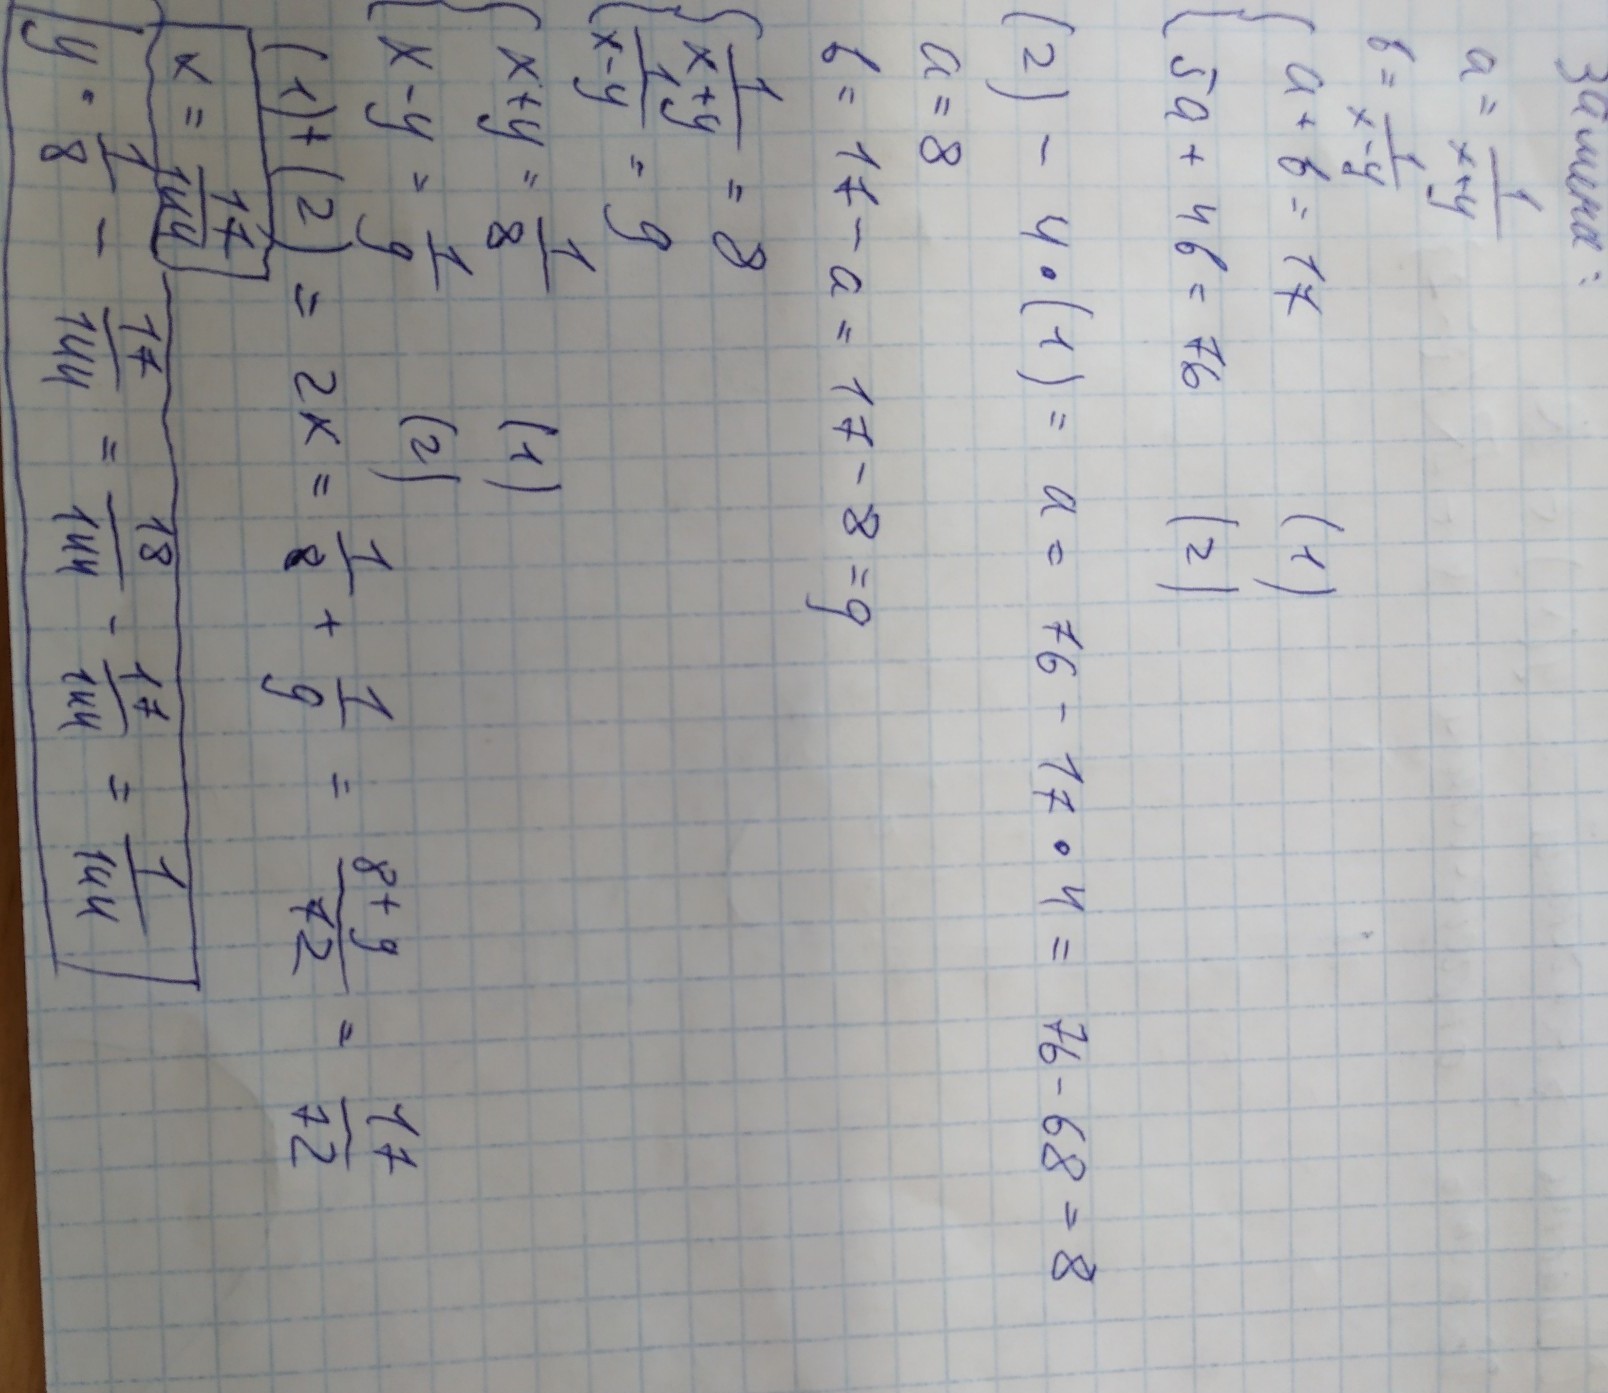 Замена:
a = 1/(x+y)
b = 1/(x-y)
{ a + b = 17 (1)
{ 5a + 4b = 76 (2)
(2) - 4•(1) = a = 76 - 17•4 = 76 - 68 = 8
a = 8
b = 17 - a = 17 - 8 = 9
{ 1/(x+y) = 8
{ 1/(x-y) = 9
{ x+y = 1/8 (1)
{ x-y = 1/9 (2)
(1)+(2) = 2x = 1/8 + 1/9 = (8+9)/72 = 17/72
x = 17/144
y = 1/8 - 17/144 = 18/144 - 17/144 = 1/144